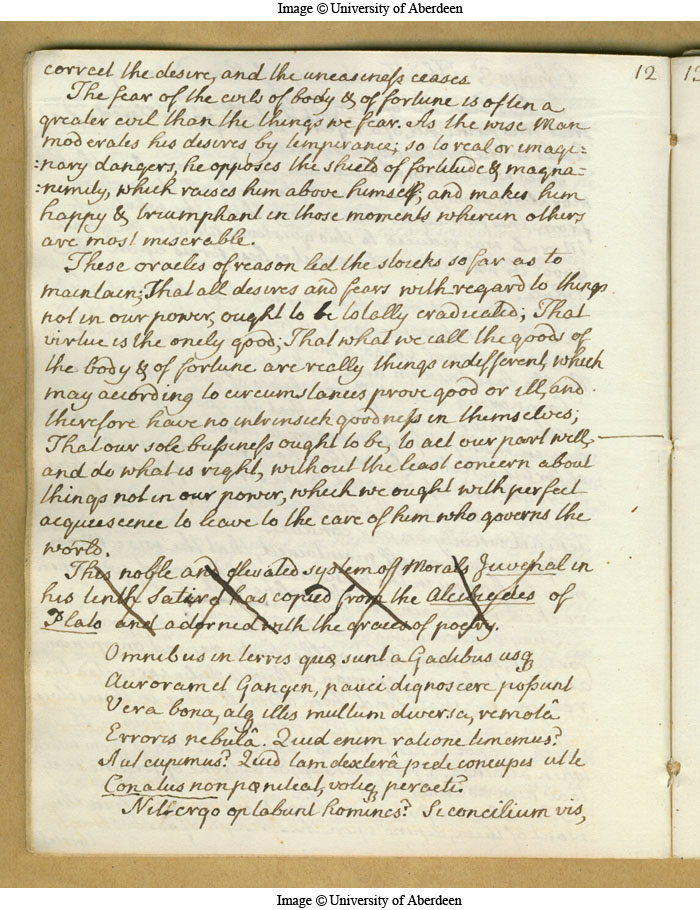 Image © University of Aberdeen
12
13
correct the desire, and the uneasiness ceases
The fear of the evils of body & of fortune is often a
greater evil than the things we fear. As the wise Man
moderates his desires by temperance; so to real or imagi=
=nary dangers, he opposes the shield of fortitude & magna=
=nimity, which raises him above himself, and makes him
happy & triumphant in those moments wherein others
are most miserable.
These oracles of reason led the stoicks so far as to
maintain; That all desires and fears with regard to things
not in our power, ought to be totally eradicated; That
virtue is the onely good; That what we call the goods of
the body & of fortune are really things indifferent, which
may according to circumstances prove good or ill, and
therefore have no intrinsick goodness in themselves;
That our sole bussiness ought to be, to act our part well,
and do what is right, without the least concern about
things not in our power, which we ought with perfect
acquescence to leave to the care of him who governs the
world.
This noble and elevated system of Morals Juvenal in
his tenth Satire has copied from the Alcibiades of
Plato and adorned with the graces of poetry.
Omnibus in terris quæ sunt a Gadibus usq
Auroram et Gangen, pauci dignoscere possunt
Vera bona, atq illis multum diversa, remotâ
Erroris nebulâ. Quid enim ratione timemus?
Aut cupimus? Quid tam dexterâ pede concupis ut te
Conatus non pœniteat, votiq peracti?
Nil ergo optabunt homines? Si concilium vis,
Image © University of Aberdeen